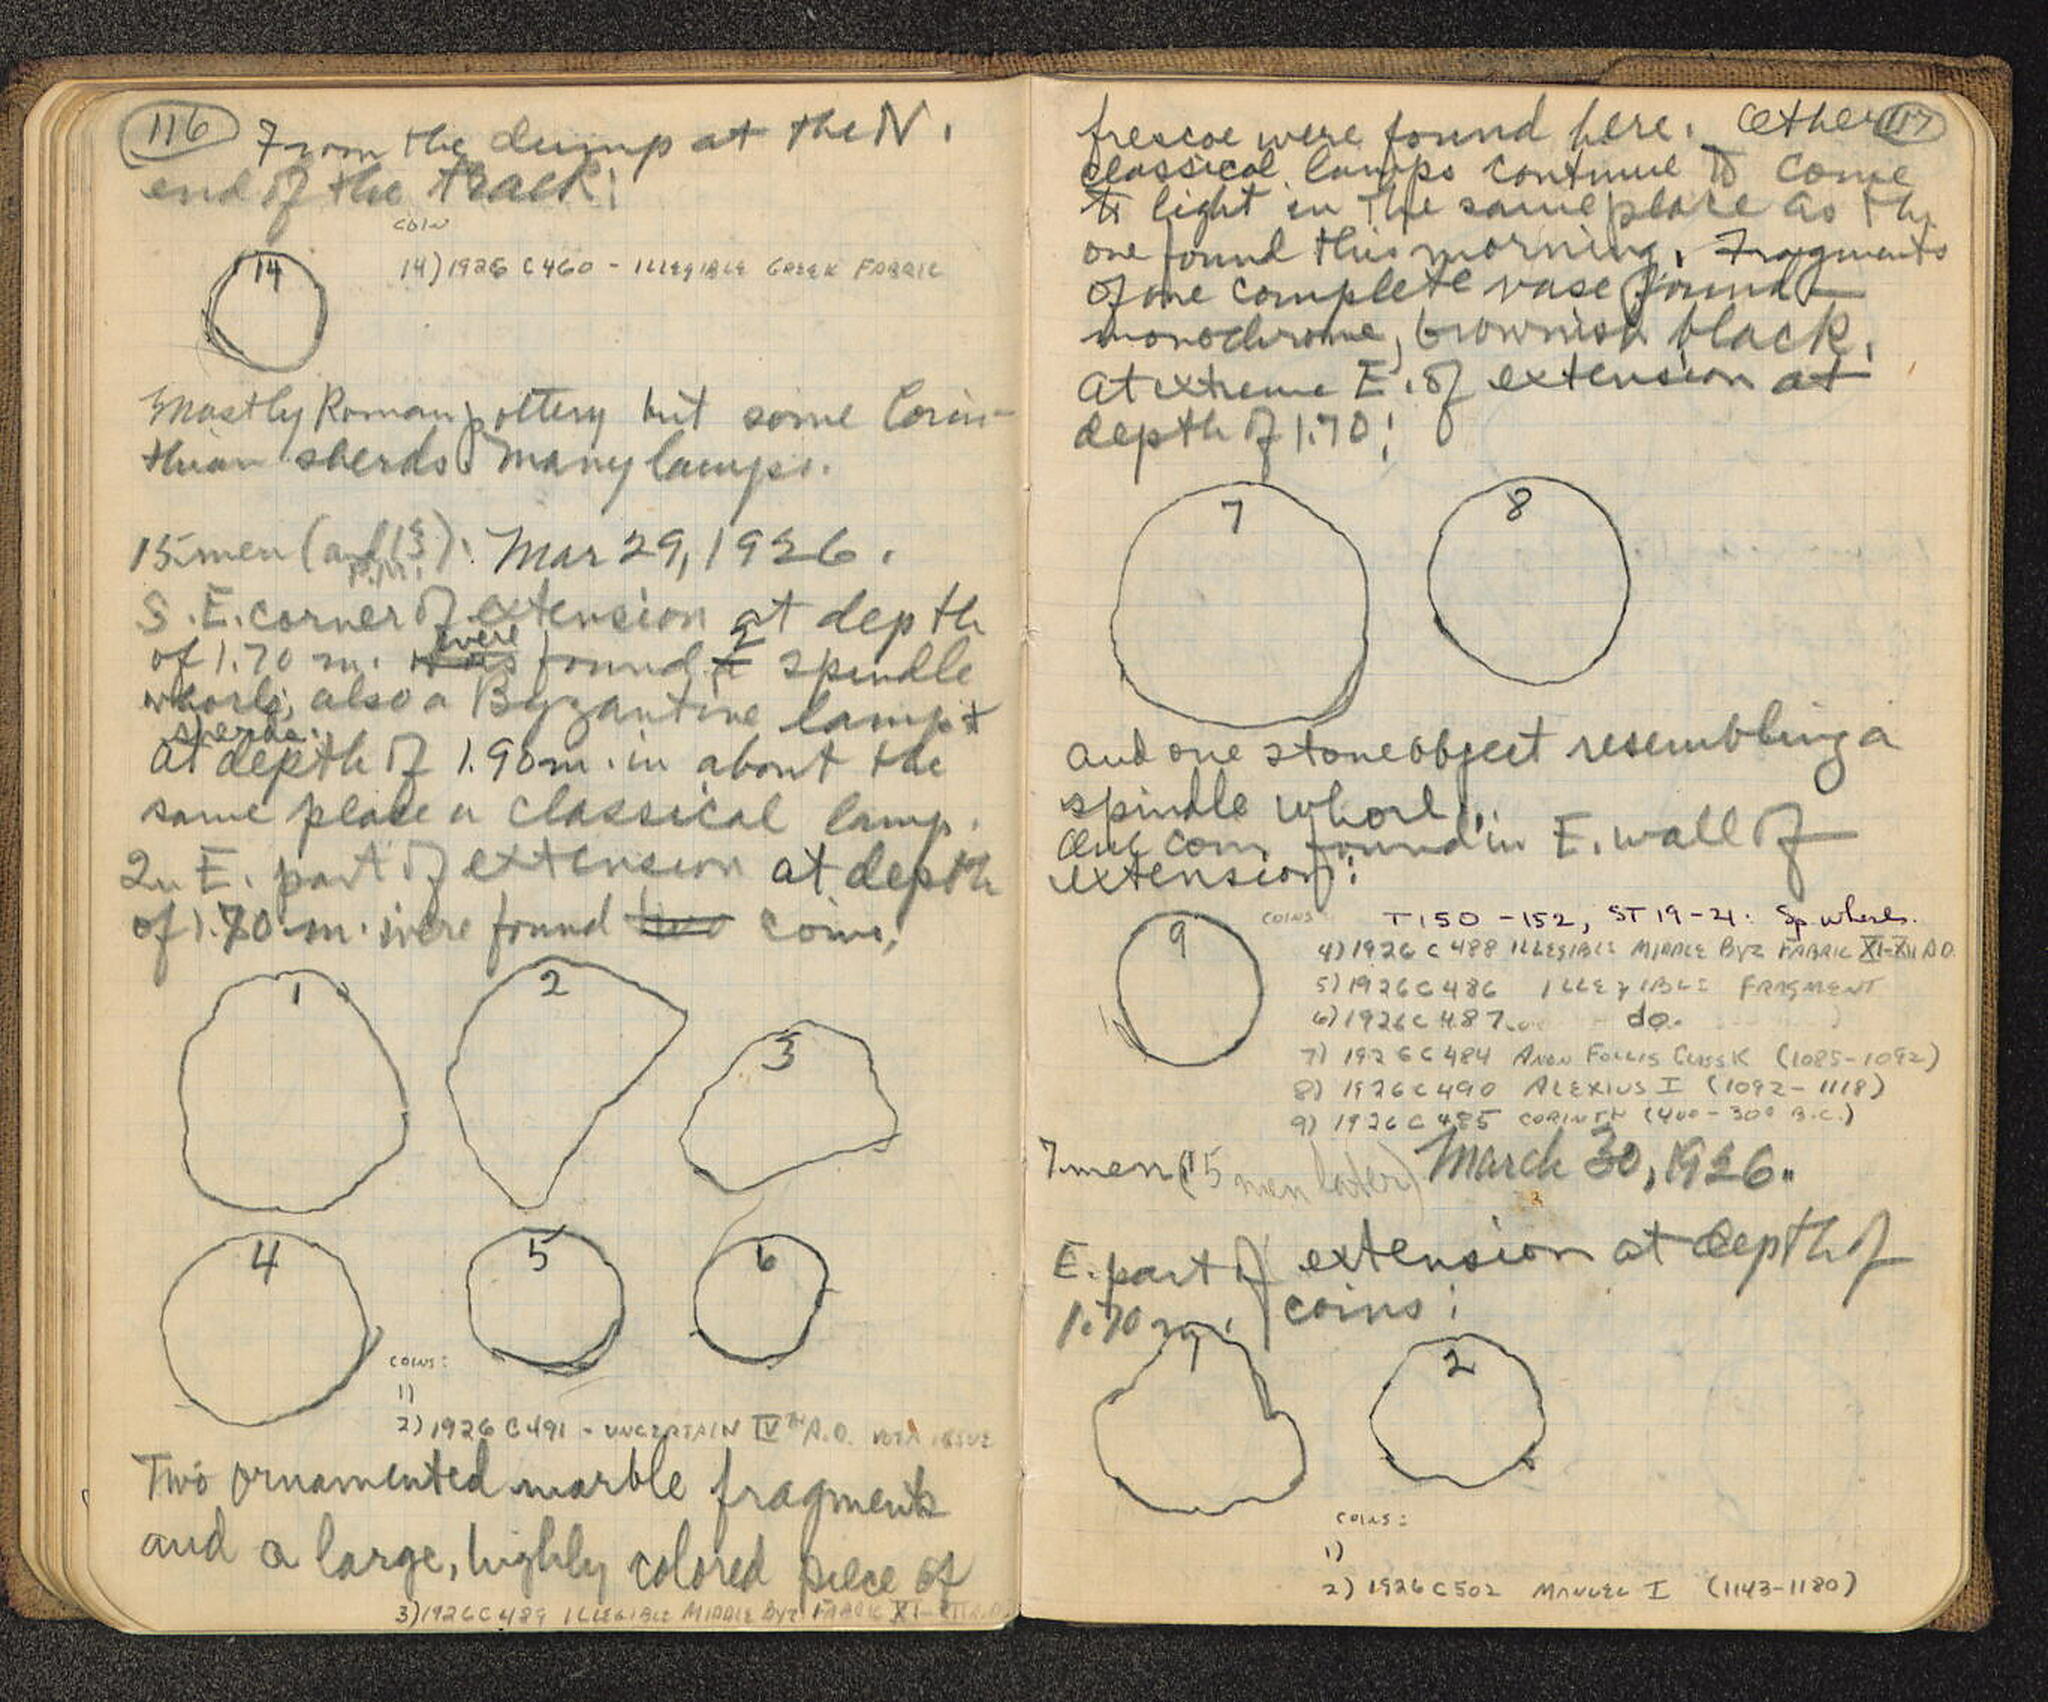 116
From the dump at the N.
end of the track:
COIN
14
14) 1926 C 460 - ILLEGIBLE GREEK FABRIC
Mostly Roman pottery but some Corin-
thian sherds. Many lamps.
15 men (and 13 P.M.): Mar 29, 1926.
S. E. corner of extension at depth
of 1.70 m. were found 2 spindle
whorls; also a Byzantine lamp +
sherds.
At depth of 1.90 m. in about the
same place a classical lamp.
In E. part of extension at depth
of 1.70 m. were found two coins,
1
2
3
4
5
6
COINS:
1)
2) 1926 C 491 - UNCERTAIN IVTH A.D. VOTA ISSUE
Two ornamented marble fragments
and a large, highly colored piece of
3) 1926 C 489 ILLEGIBLE MIDDLE BYZ FABRIC XI-XII A.D.
117
frescoe were found here. Other
classical lamps continue to come
to light in the same place as the
one found this morning. Fragments
of one complete vase found -
monochrome, brownish black.
At extreme E. of extension at
depth of 1.70:
7
8
and one stone object resembling a
spindle whorl.
One coin found in E. wall of
extension:
9
COINS:
T150 - 152, ST 19 - 21: Sp. whorls.
4) 1926 C 488 ILLEGIBLE MIDDLE BYZ FABRIC XI-XII A.D.
5) 1926 C 486 ILLEGIBLE FRAGMENT
6) 1926 C 487 do.
7) 1926 C 484 ANON FOLLIS CLASS K (1085-1092)
8) 1926 C 490 ALEXIUS I (1092-1118)
9) 1926 C 485 CORINTH (400-300 B.C.)
7 men (15 men later) March 30, 1926.
E. part of extension at depth of
1.70 m. coins:
1
2
COINS:
1)
2) 1926 C 502 MANUEL I (1143-1180)